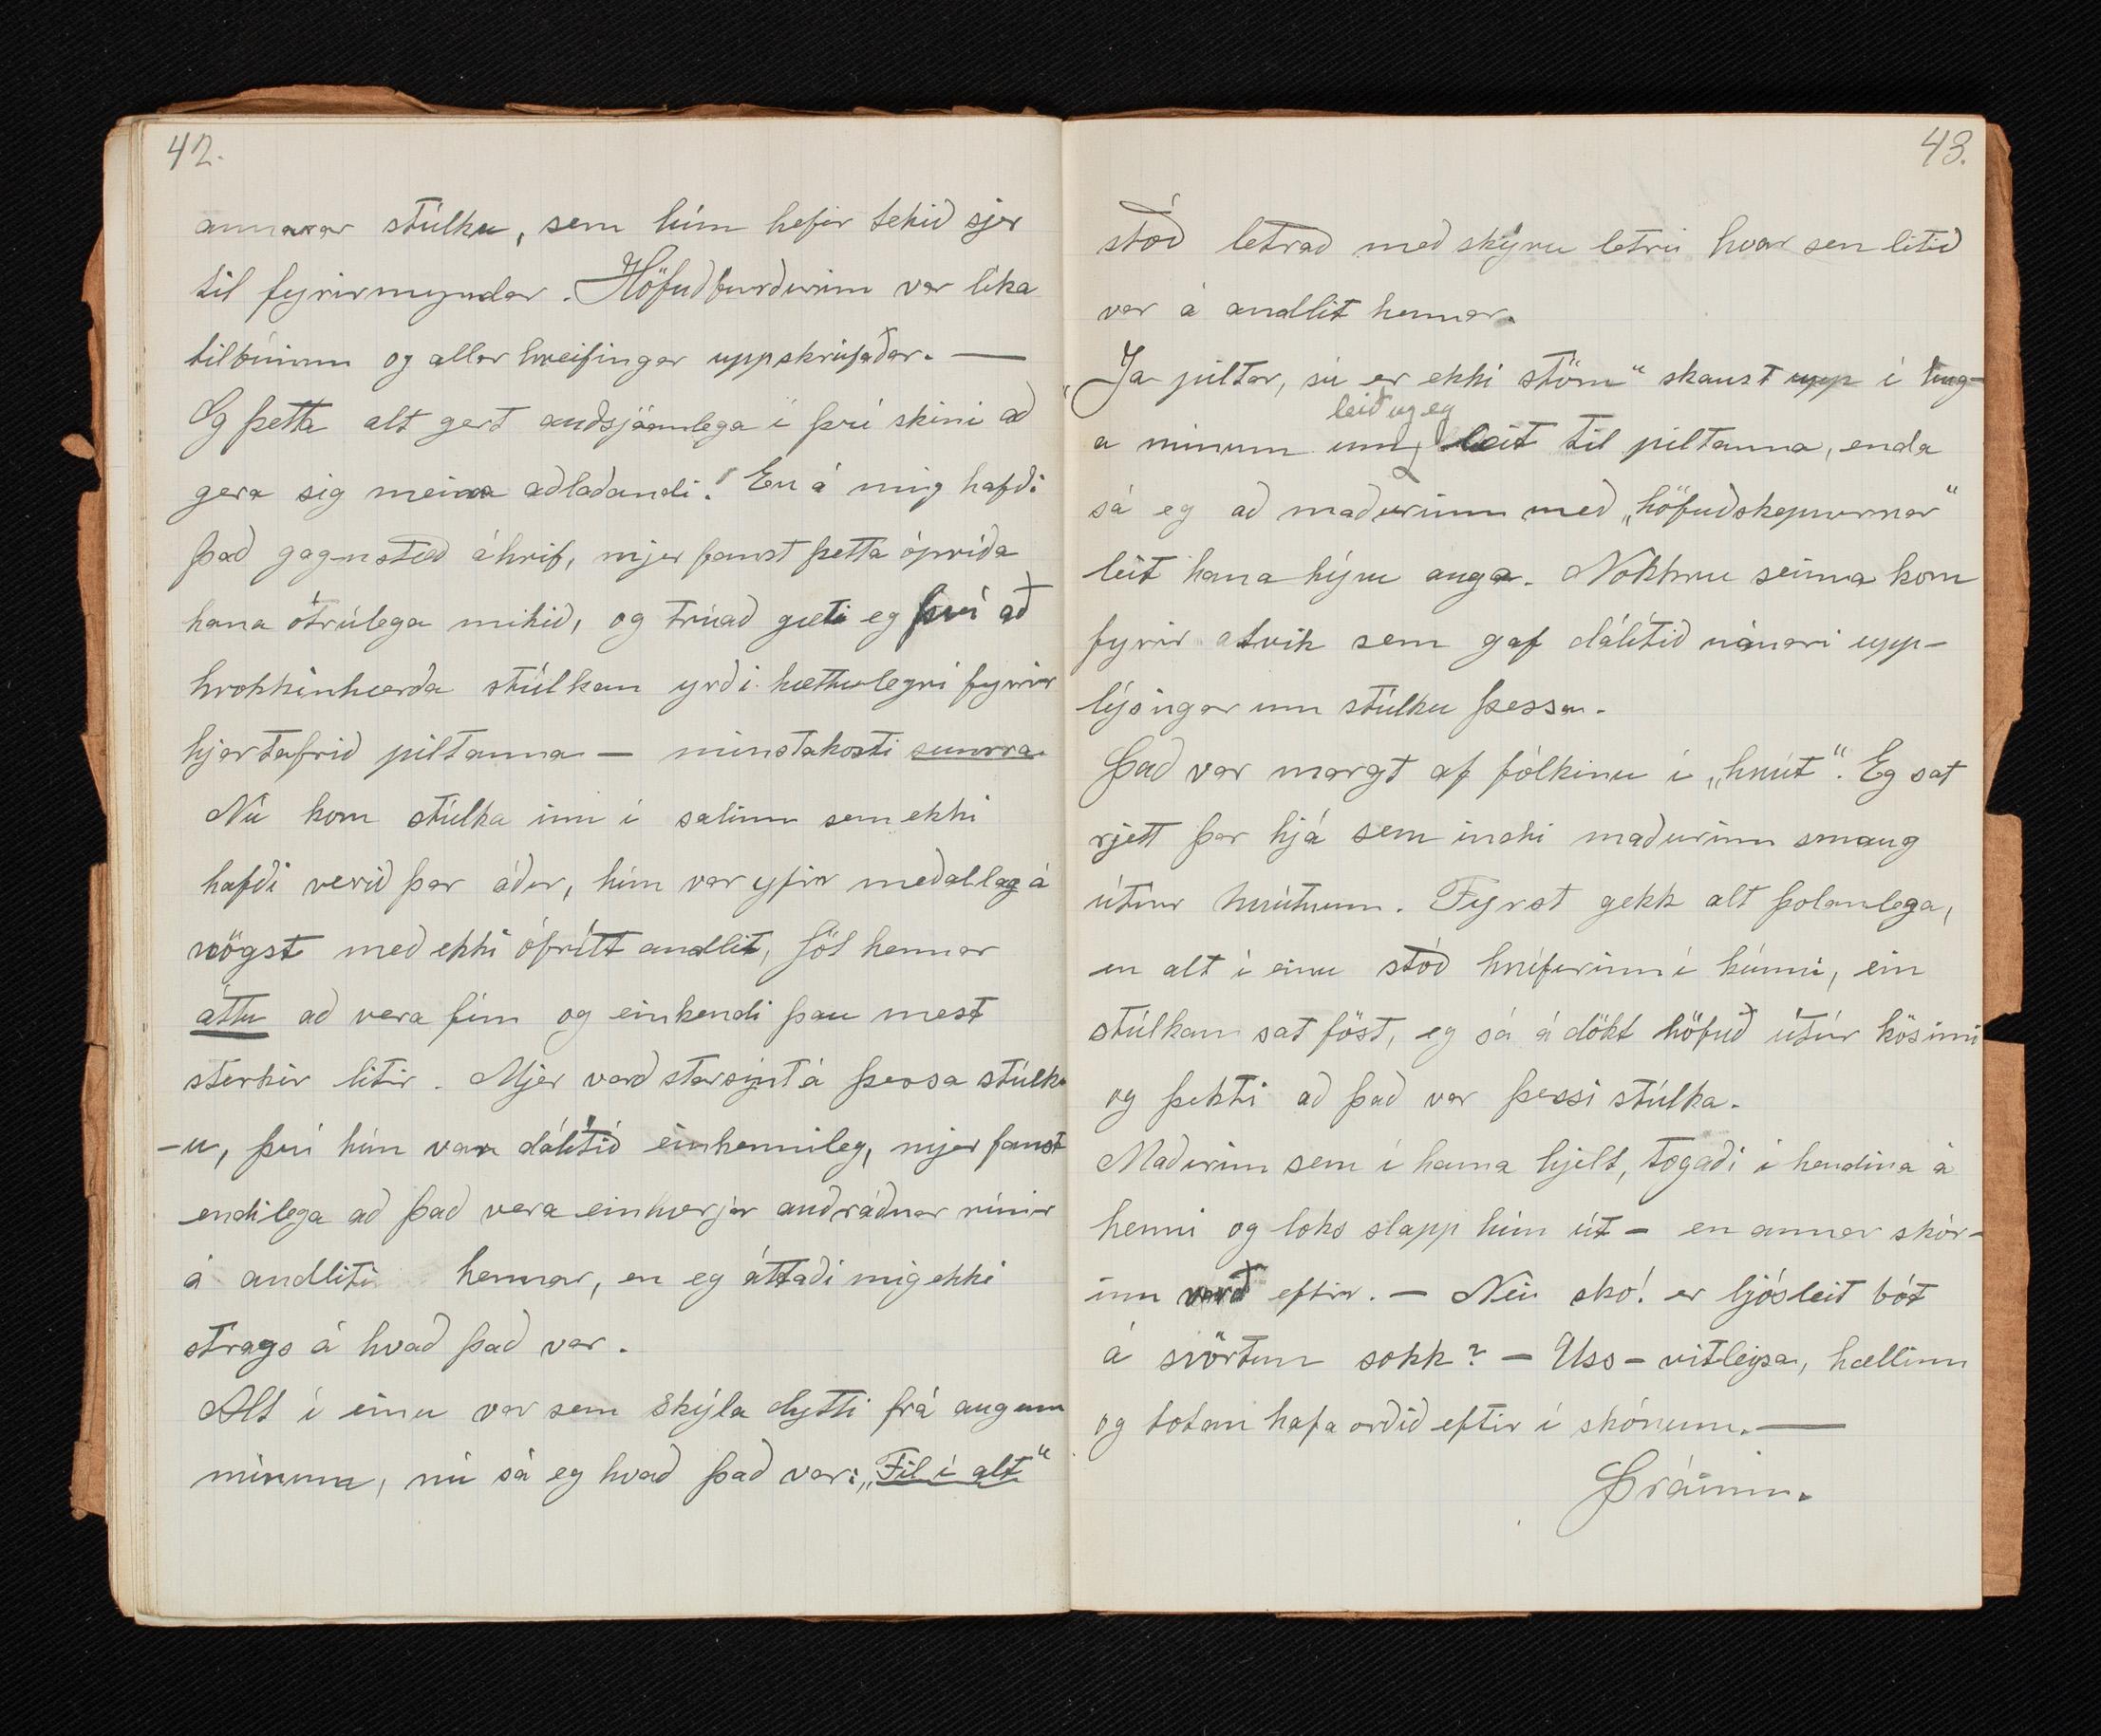 42.
annarar stúlku, sem hún hefir tekið sjer
til fyrirmyndar. Höfuðburðurinn var líka
tilbúinn og allar hreifingar uppskrúfaðar. —
Og þetta alt gert auðsjáanlega í því skini að
gera sig meira aðlaðandi! En á mig hafði
það gagnstæð áhrif, mjer fanst þetta óprýða
hana ótrúlega mikið, og trúað gæti eg því að
hrokkinhærða stúlkan yrði hættulegri fyrir
hjartafrið piltanna — minstakosti sumra.
Nú kom stúlka inn í salinn sem ekki
hafði verið þar áður, hún var yfir meðallag á
vögst með ekki ófrítt andlit, föt hennar
áttu að vera fín og einkendi þau mest
sterkir litir. Mjer varð starsýnt á þessa stúlk
-u, því hún var dálítið einkennileg, mjer fanst
endilega að það vera einhverjar auðráðnar rúnir
á andliti hennar, en eg áttaði mig ekki
strags á hvað það var.
Alt í einu var sem skýla dytti frá augum
mínum, nú sá eg hvað það var: „Til í alt“
43.
stóð letrað með skýru letri hvar sem litið
var á andlit hennar.
„Ja piltar, sú er ekki störu“ skaust upp í hug-
leið og eg
a mínum um leit til piltanna, enda
sá eg að maðurinn með „höfuðskepnurnar“
leit hana hýru auga. Nokkru seinna kom
fyrir atvik sem gaf dálítið nánari upp-
lýsingar um stúlku þessa.
Það var margt af fólkinu í „hnút“. Eg sat
rjett þar hjá sem inski maðurinn smaug
útúr hnútnum. Fyrst gekk alt þolanlega,
en alt í einu stóð hnífurinn í kúnni, ein
stúlkan sat föst, eg sá á dökt höfuð útúr kösinni
og þekti að það var þessi stúlka.
Maðurinn sem í hana hjelt, togaði í hendina á
henni og loks slapp hún út - en annar skór-
inn varð eftir. — Nei sko! er ljósleit bót
á svörtum sokk? — Uss - vitleysa, hællinn
og totan hafa orðið eftir í skónum. —
Þráinn.